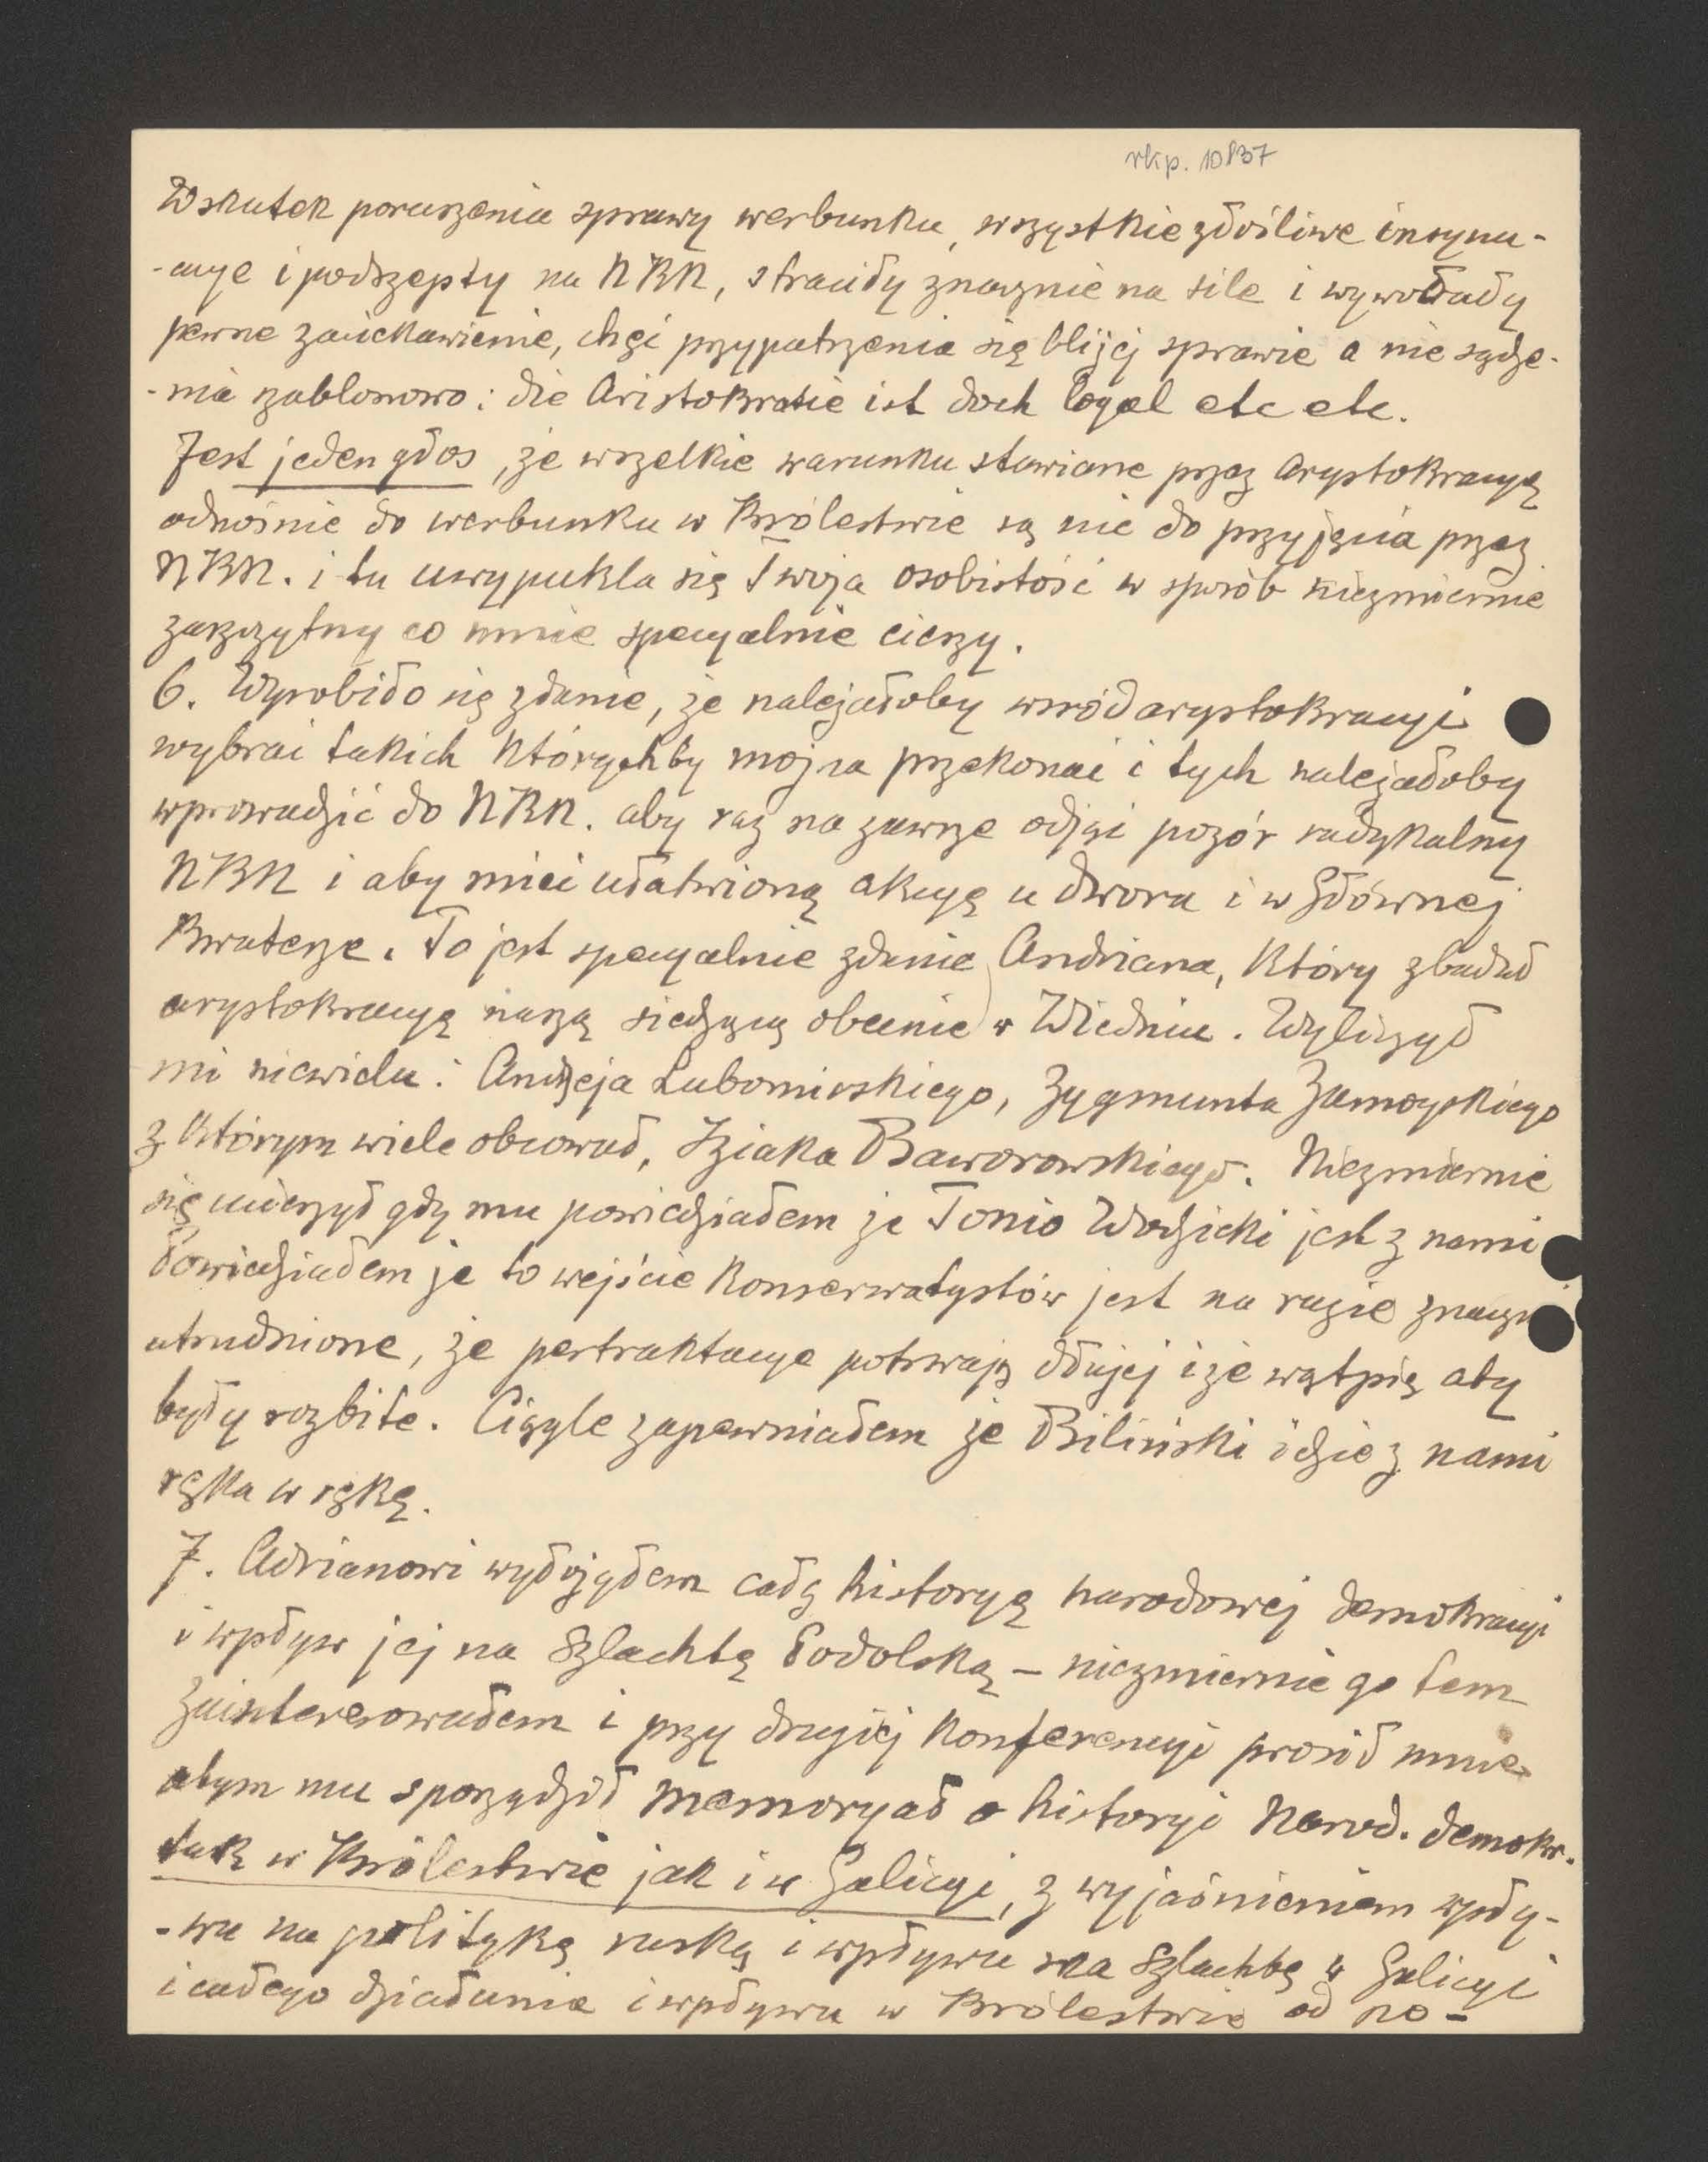 rkp. 10837
Wskutek poruszenia sprawy werbunku, wszystkie złośliwe insynu-
-acye i podszepty na NKN, straciły znacznie na sile i wywołały
pewne zaciekawienie, chęć przypatrzenia się bliżej sprawie a nie sądze-
-nia szablonowo: die Aristokratie ist doch loyal etc etc.
Jest jeden głos, że wszelkie warunku stawiane przez arystokracyę
odnośnie do werbunku w Królestwie są nie do przyjęcia przez
NKN. i tu uwypukla się Twoja osobistość w sposób niezmiernie
zaszczytny co mnie specyalnie cieszy.
6. Wyrobiło się zdanie, że należałoby wśród arystokracyi
wybrać takich którychby można przekonać i tych należałoby
wprowadzić do NKN. aby raz na zawsze odjąć pozór radykalny
NKN i aby mieć ułatwioną akcyę u dworu i w Głównej
Kwaterze. To jest specyalnie zdanie Andriana, który zbadał
arystokracyę naszą siedzącą obecnie w Wiedniu. Wyliczył
mi niewielu: Andrzeja Lubomirskiego, Zygmunta Zamoyskiego
z którym wiele obcował, Iziaka Baworowskiego. Niezmiernie
się ucieszył gdy mu powiedziałem że Tonio Wodzicki jest z nami
Powiedziałem że to wejście Konserwatystów jest na razie znaczn
utrudnione, że pertraktacye potrwają dłużej i że wątpię aby
były rozbite. Ciągle zapewniałem że Biliński idzie z nami
ręka w rękę.
7. Adrianowi wyłożyłem całą historyę narodowej demokracyi
i wpływ jej na Szlachtę Podolską – niezmiernie go tem
zainteresowałem i przy drugiej Konferencyi prosił mnie
abym mu sporządził memoryał o historyi Narod. demokr.
tak w Królestwie jak i w Galicyi, z wyjaśnieniem wpły-
-wu na politykę ruską i wpływu na Szlachtę w Galicyi
i całego działania i wpływu w Królestwie od po-